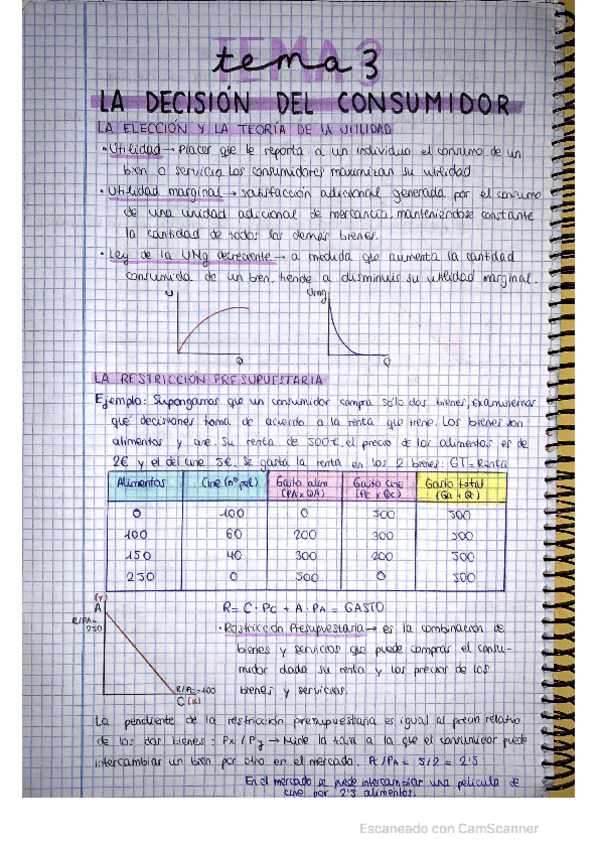 TEMA 3
tema 3
LA DECISIÓN DEL CONSUMIDOR
LA ELECCIÓN Y LA TEORÍA DE LA UTILIDAD
• Utilidad → Placer que le reporta a un individuo el consumo de un
bien o servicio los consumidores maximizan su utilidad
• Utilidad marginal → satisfacción adicional generada por el consumo
de una unidad adicional de mercancía, manteniéndose constante
la cantidad de todos los demás bienes.
• Ley de la UMg decreciente → a medida que aumenta la cantidad
consumida de un bien, tiende a disminuir su utilidad marginal.
U
Umg
Q
Q
LA RESTRICCIÓN PRESUPUESTARIA
Ejemplo: Supongamos que un consumidor compra sólo dos bienes, examinemos
qué decisiones toma de acuerdo a la renta que tiene. Los bienes son
alimentos y cine. Su renta de 500€, el precio de los alimentos es de
2€ y el del cine 5€. Se gasta la renta en los 2 bienes: GT = Renta
Alimentos Cine (nº pel) Gasto alim (PA x QA) Gasto cine (Pc x Qc) Gasto total (Ga + Gc)
0 100 0 500 500
100 60 200 300 500
150 40 300 200 500
250 0 500 0 500
(y)
A
R/PA=
250
R/Pc=100
C (x)
R = C · Pc + A · PA = GASTO
• Restricción Presupuestaria → es la combinación de
bienes y servicios que puede comprar el consu-
midor dada su renta y los precios de los
bienes y servicios.
La pendiente de la restricción presupuestaria es igual al precio relativo
de los dos bienes: Px / Py → Mide la tasa a la que el consumidor puede
intercambiar un bien por otro en el mercado. Pc / PA = 5/2 = 2'5
En el mercado se puede intercambiar una película de
cine por 2'5 alimentos.
Escaneado con CamScanner